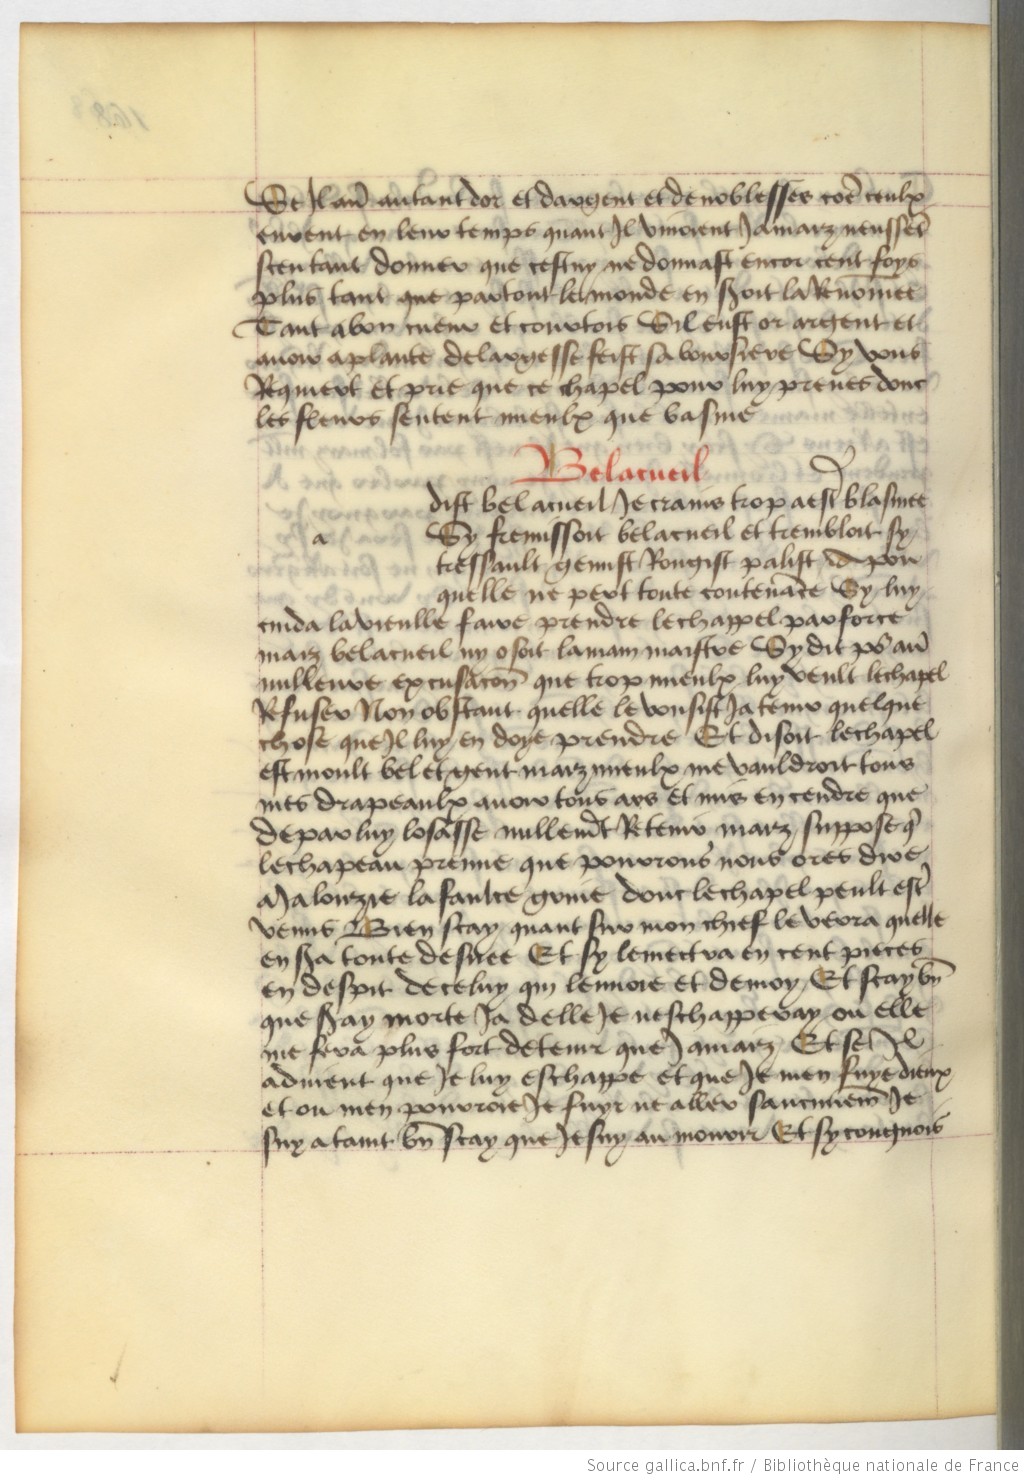 Se Il avoit autant dor et dargent et de noblesses coe ceulx
eurent en leur temps quant Il vivoient Jamaiz neussent
sceu tant donner que cestuy ne donnast encor cent foys
plus tant que partout le monde en seroit la Renommee
Tant a bon cueur et courtois Sil eust or argent et
avoir a plante de largesse feist sa boursiere Sy vous
Requiert et prie que ce chapel pour luy prenes donc
les fleurs sentent mieulx que basme
Belacueil
dist bel acueil Je crains trop a estre blasmee
a Sy fremissoit belacueil et trembloit sy
tressault gemist Rougist palist pour
quelle ne pert toute contenance Sy luy
cuida la vieulle faire prendre le chappel par force
maiz belacueil ny osoit la main maistre Sy dit po avoir
milleure excusacon que trop mieulx luy veult le chapel
Refuser Non obstant quelle le vousist Ja tenir quelque
chose que Il luy en doye prendre Et disoit le chapel
est moult bel et gent maiz mieulx me vauldroit tous
mes drapeaulx avoir tous ars et mis en cendre que
de par luy losasse nullemt Retenir maiz suppose q
le chapeau prenne que pourrons nous ores dire
a Jalouzie la faulce grime dont le chapel peult estre
venus Bien scay quant sur mon chief le verra quelle
en sera toute desvee Et sy le mectra en cent pieces
en despit de celuy qui lenvoie et de moy Et scay bn
que seray morte Ja delle Je neschapperay ou elle
me fera plus fort detenir que Jamaiz Et se Il
advient que Je luy eschappe et que Je men fuye dieux
et ou men pourroie Je fuyr ne aller sauvmem Je
suy a tamt bn scay que Je suy au mourir Et sy congnois
Source gallica.bnf.fr / Bibliothèque nationale de France